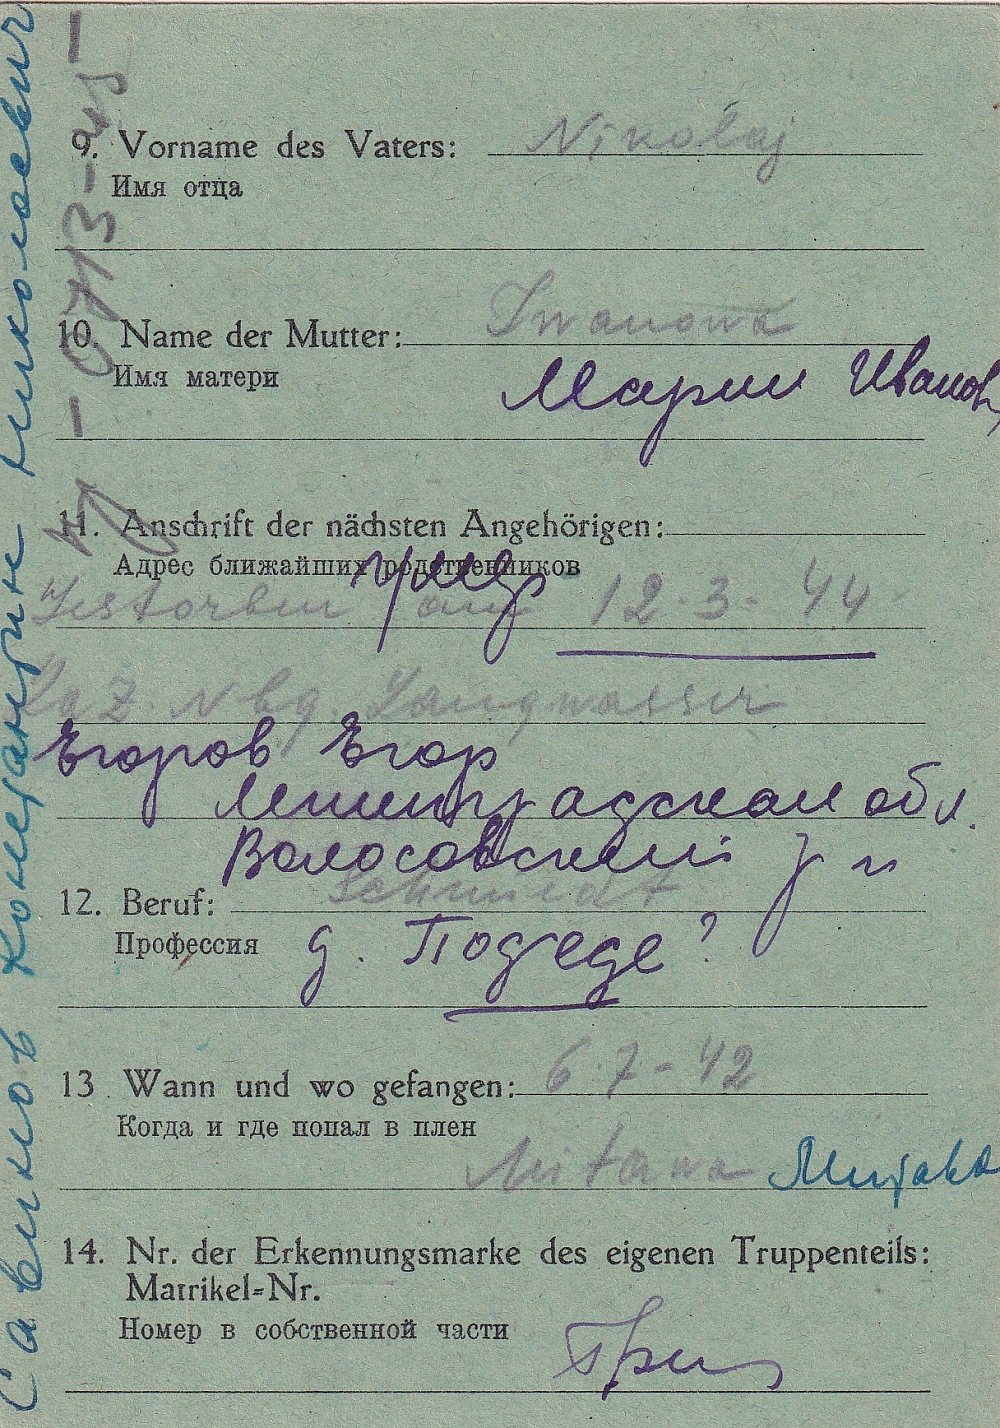 9. Vorname des Vaters: Nikolaj
Имя отца
10. Name der Mutter: Iwanowa
Имя матери
Марии Иванов
11. Anschrift der nächsten Angehörigen:
Адрес ближайших родственников
умер
Gestorben am 12.3.44
Laz. Nbg. Langwasser
Егоров Егор
Ленинградская обл.
Волосовский р н
12. Beruf: Schmiedt
Профессия
д. Подъеде?
13. Wann und wo gefangen: 6.7-42
Когда и где попал в плен
Mitawa Митава
14. Nr. der Erkennungsmarke des eigenen Truppenteils:
Matrikel=Nr.
Номер в собственной части
Савиков николаевич